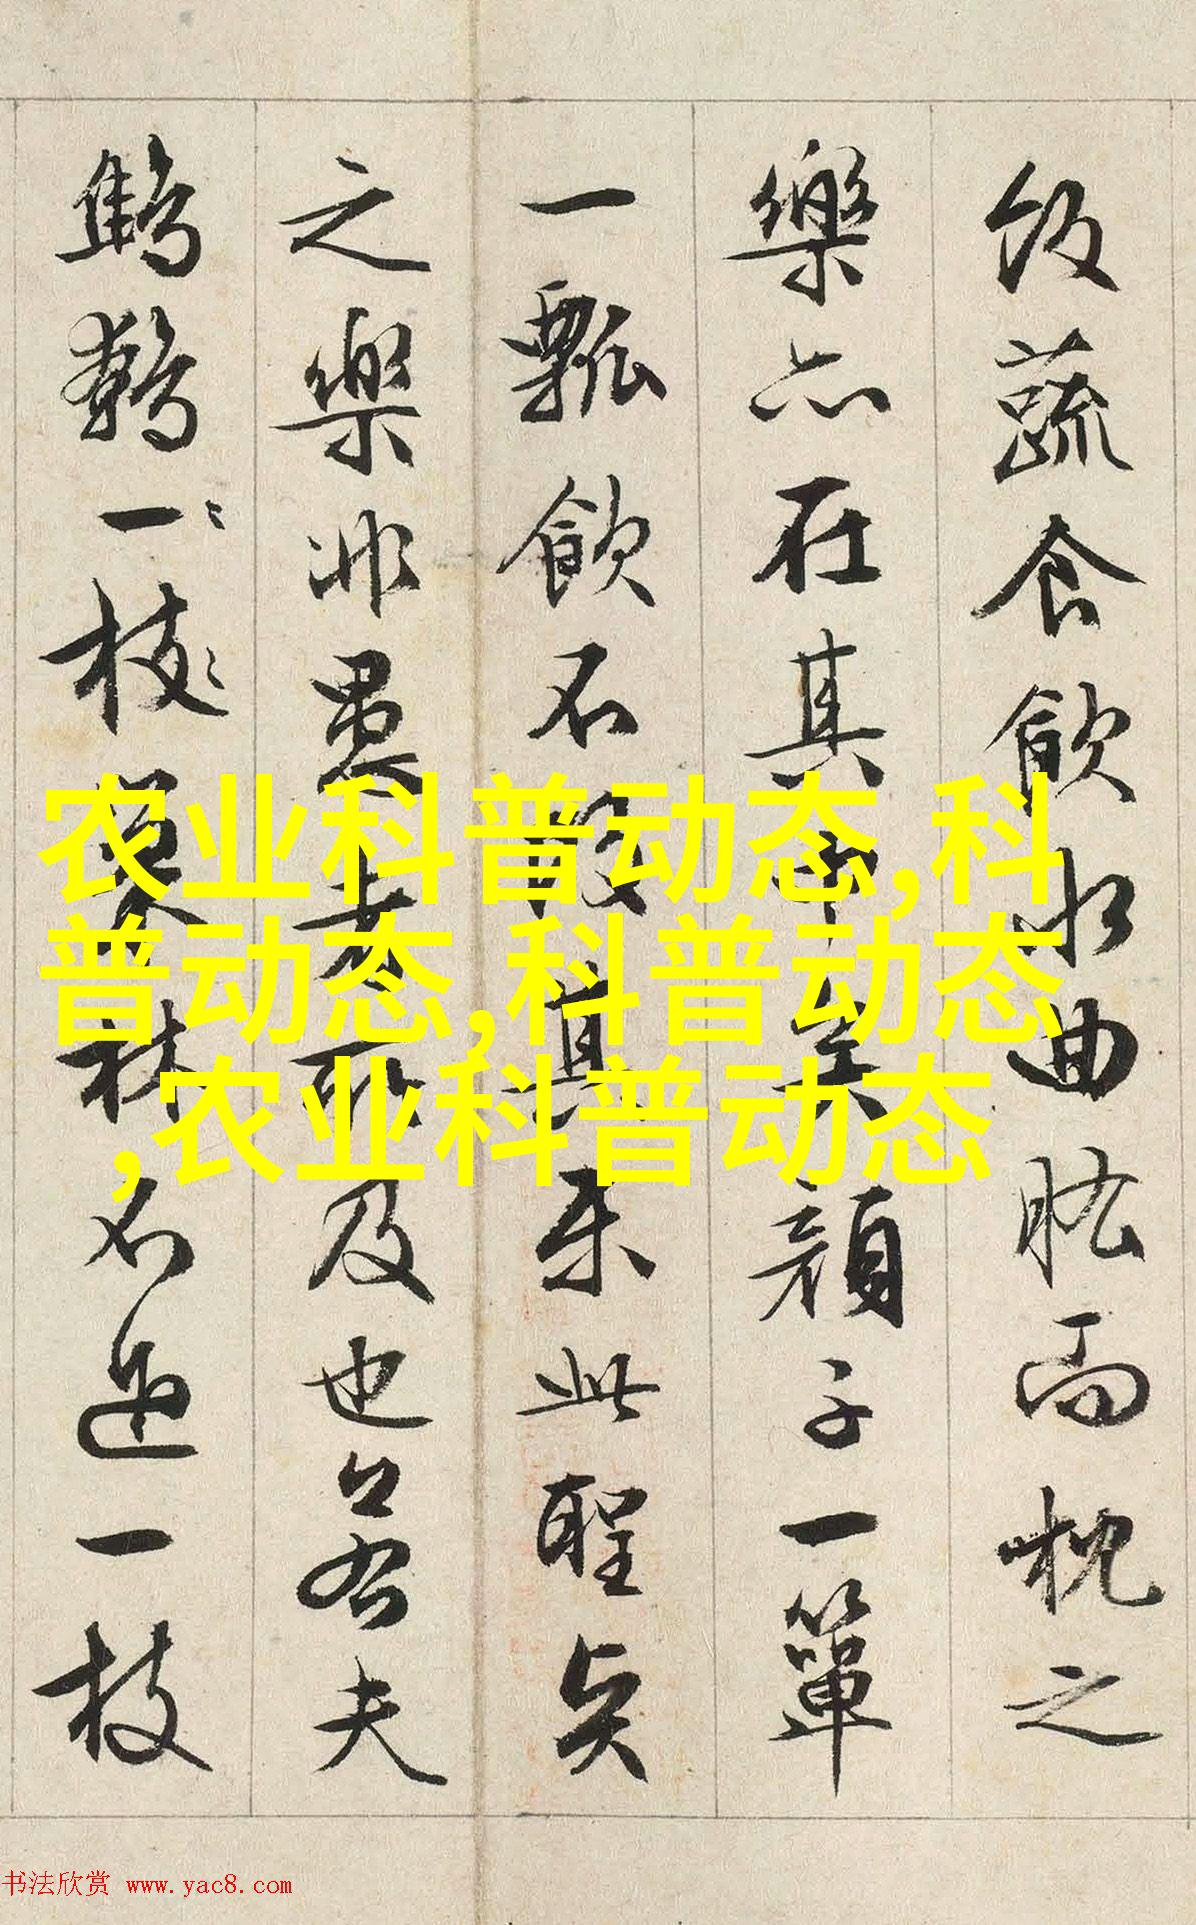 飯蔬食飲水曲肱而枕之
樂亦在其中矣顏子一簞
一瓢飲不改其樂此聖賢
之樂非愚者所及也若夫
鷦鷯一枝巢林不過一枝
农业科普动态,科
普动态,科普动态
,农业科普动态
书法欣赏 www.yac8.com